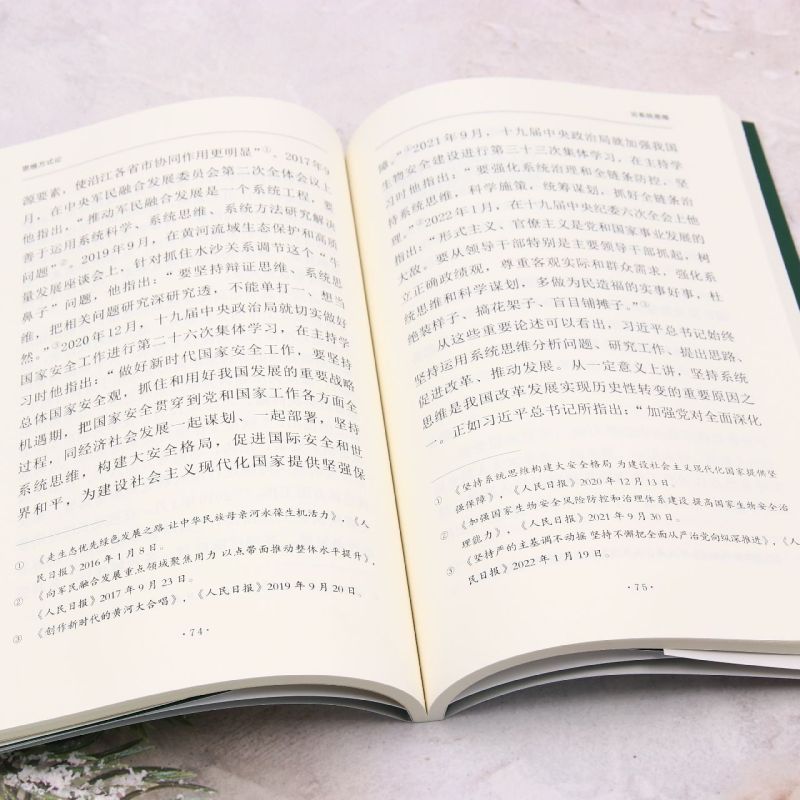 思维方式论
源要素，使沿江各省市协同作用更明显”①。2017年9
月，在中央军民融合发展委员会第二次全体会议上
他指出：“推动军民融合发展是一个系统工程，要
善于运用系统科学、系统思维、系统方法研究解决
问题”②。2019年9月，在黄河流域生态保护和高质
量发展座谈会上，针对抓住水沙关系调节这个“牛
鼻子”问题，他指出：“要坚持辩证思维、系统思
维，把相关问题研究深研究透，不能单打一、想当
然。”③2020年12月，十九届中央政治局就切实做好
国家安全工作进行第二十六次集体学习，在主持学
习时他指出：“做好新时代国家安全工作，要坚持
总体国家安全观，抓住和用好我国发展的重要战略
机遇期，把国家安全贯穿到党和国家工作各方面全
过程，同经济社会发展一起谋划、一起部署，坚持
系统思维，构建大安全格局，促进国际安全和世
界和平，为建设社会主义现代化国家提供坚强保
① 《走生态优先绿色发展之路 让中华民族母亲河永葆生机活力》，《人
民日报》2016年1月8日。
② 《向军民融合发展重点领域聚焦用力 以点带面推动整体水平提升》，
《人民日报》2017年9月23日。
③ 《创作新时代的黄河大合唱》，《人民日报》2019年9月20日。
·74·
论系统思维
障。”①2021年9月，十九届中央政治局就加强我国
生物安全建设进行第三十三次集体学习，在主持学
习时他指出：“要强化系统治理和全链条防控，坚
持系统思维，科学施策，统筹谋划，抓好全链条治
理。”②2022年1月，在十九届中央纪委六次全会上他
指出：“形式主义、官僚主义是党和国家事业发展的
大敌。要从领导干部特别是主要领导干部抓起，树
立正确政绩观，尊重客观实际和群众需求，强化系
统思维和科学谋划，多做为民造福的实事好事，杜
绝装样子、搞花架子、盲目铺摊子。”③
从这些重要论述可以看出，习近平总书记始终
坚持运用系统思维分析问题、研究工作、提出思路、
促进改革、推动发展。从一定意义上讲，坚持系统
思维是我国改革发展实现历史性转变的重要原因之
一。正如习近平总书记所指出：“加强党对全面深化
① 《坚持系统思维构建大安全格局 为建设社会主义现代化国家提供坚
强保障》，《人民日报》2020年12月13日。
② 《加强国家生物安全风险防控和治理体系建设 提高国家生物安全治
理能力》，《人民日报》2021年9月30日。
③ 《坚持严的主基调不动摇 坚持不懈把全面从严治党向纵深推进》，《人
民日报》2022年1月19日。
·75·